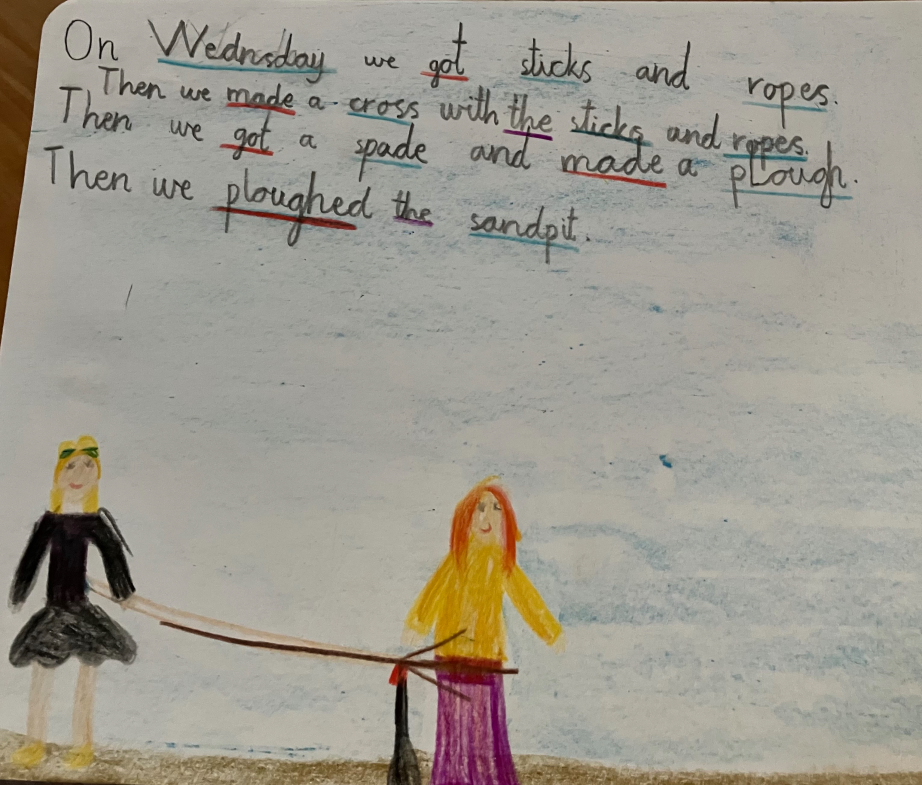 On Wednsday we got sticks and ropes.
Then we made a cross with the sticks and ropes.
Then we got a spade and made a pLough.
Then we ploughed the sandpit.